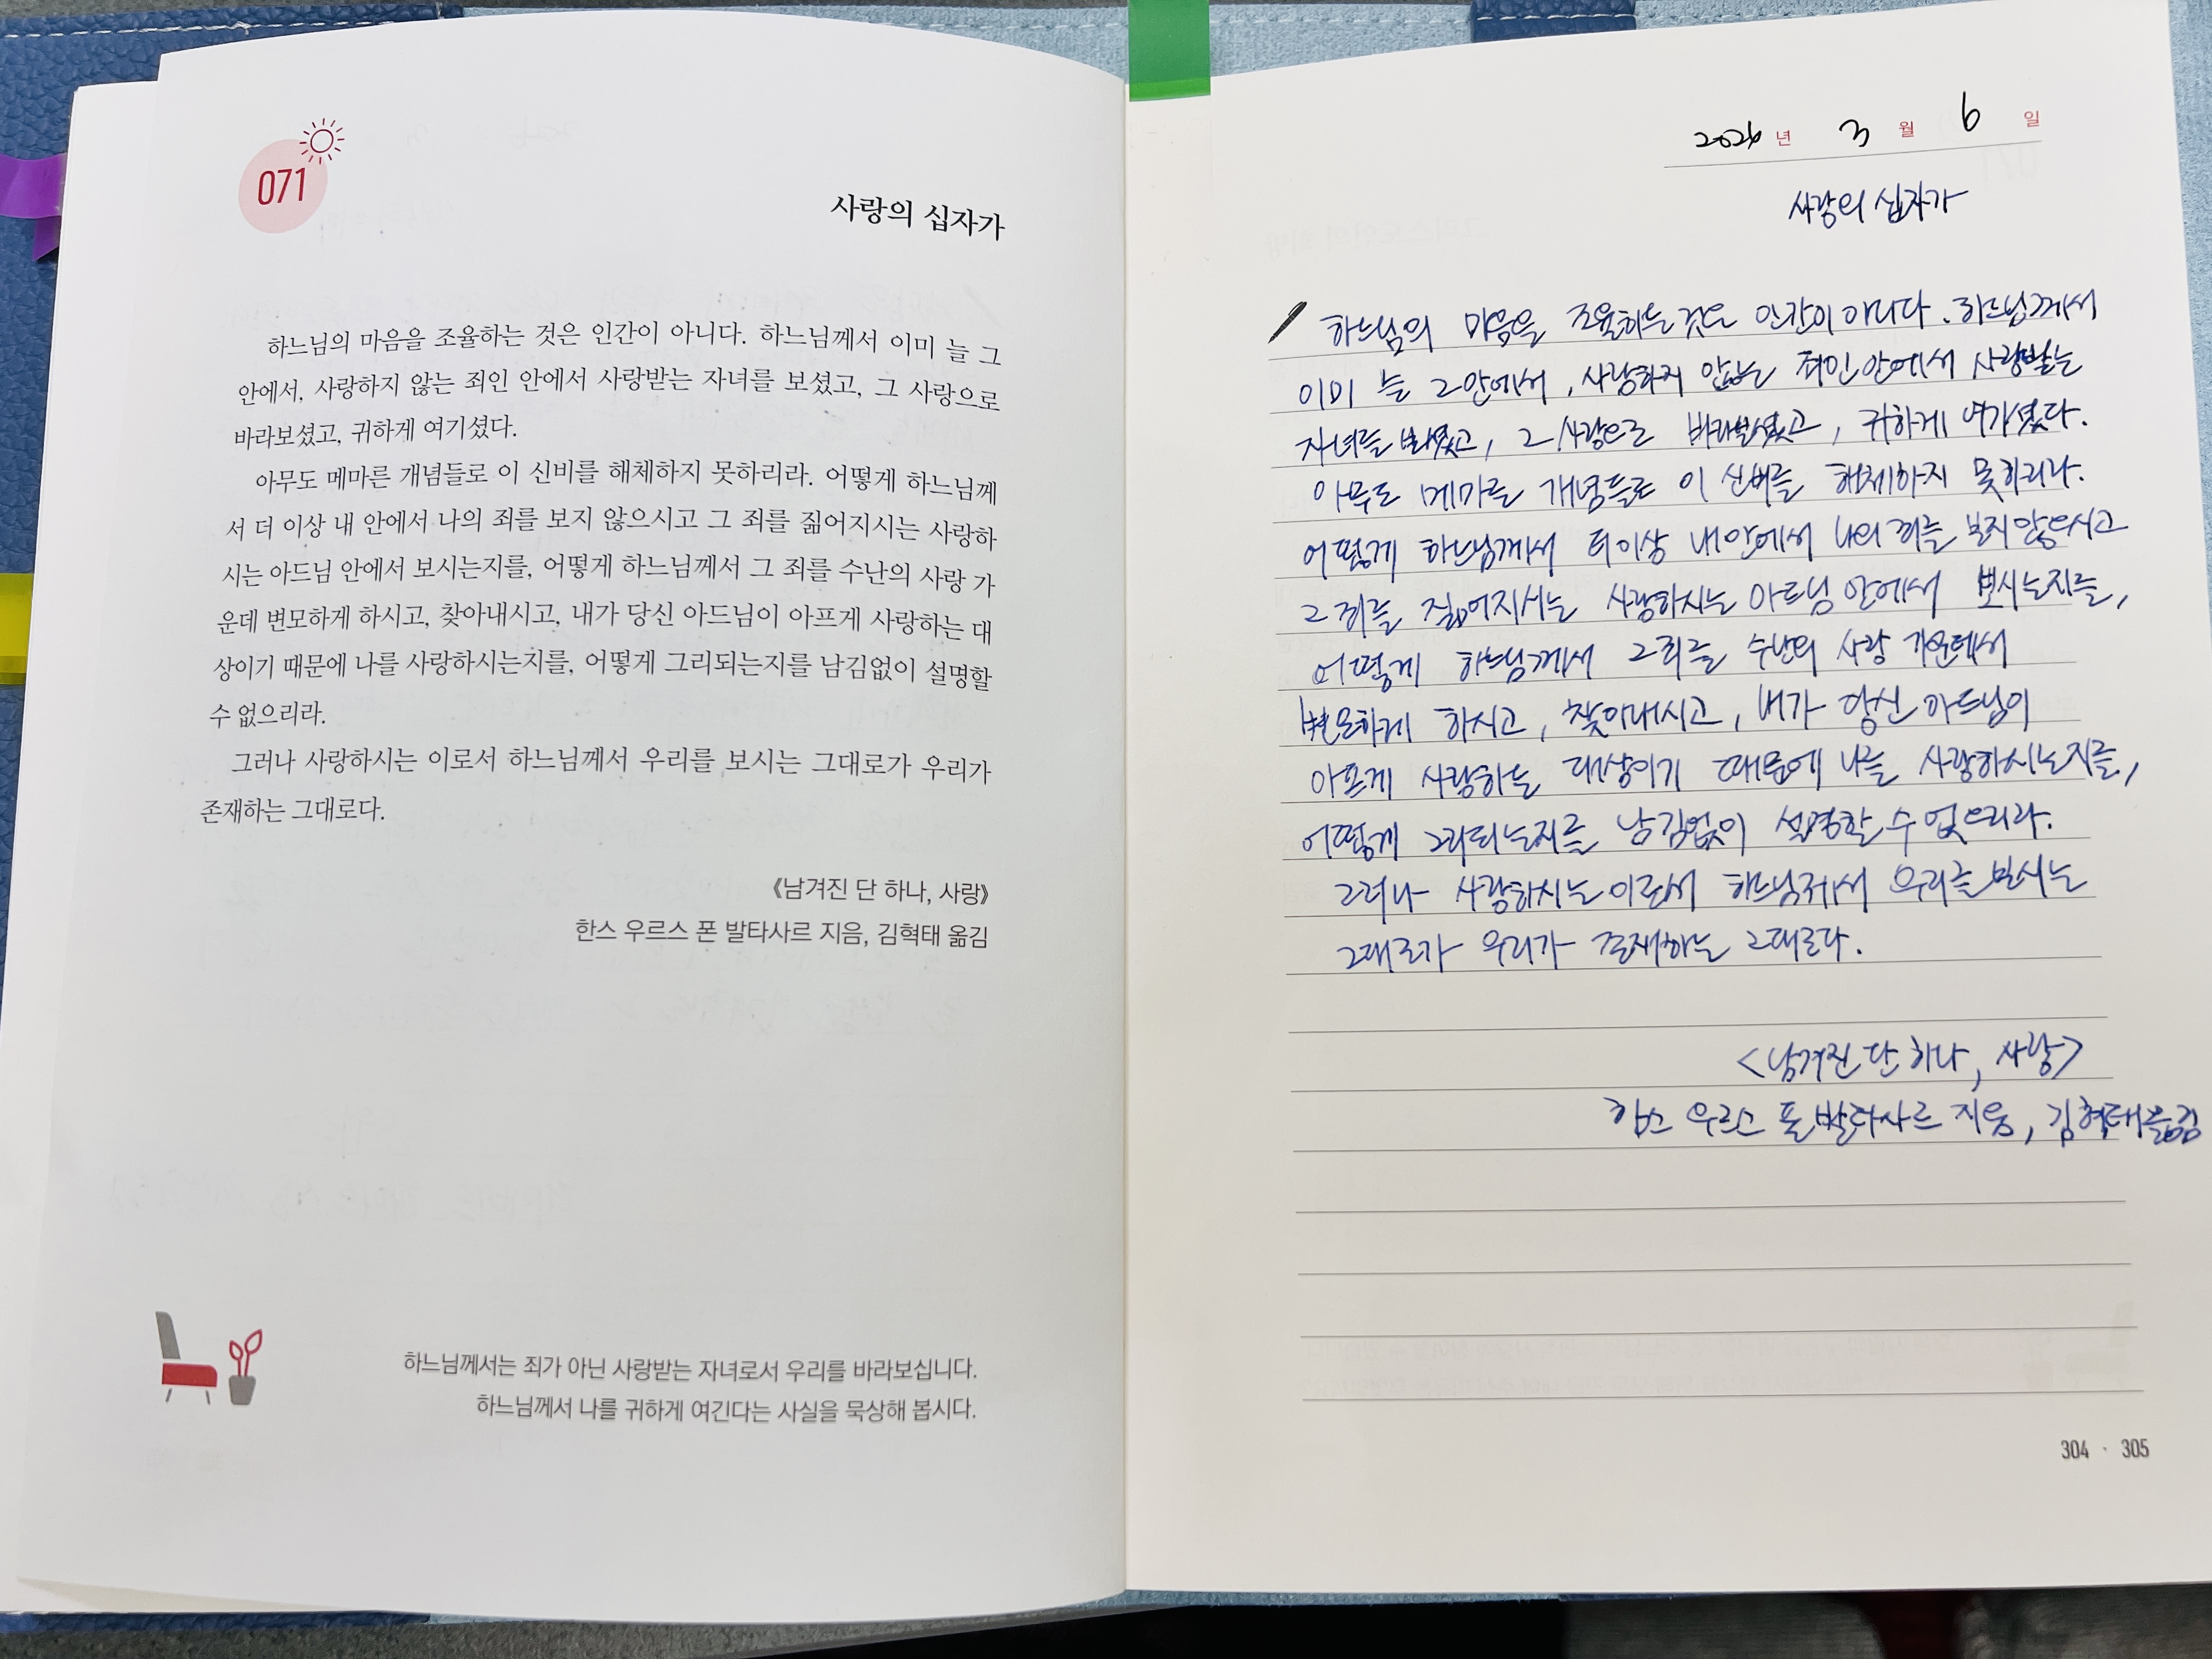 071
사랑의 십자가
하느님의 마음을 조율하는 것은 인간이 아니다. 하느님께서 이미 늘 그
안에서, 사랑하지 않는 죄인 안에서 사랑받는 자녀를 보셨고, 그 사랑으로
바라보셨고, 귀하게 여기셨다.
아무도 메마른 개념들로 이 신비를 해체하지 못하리라. 어떻게 하느님께
서 더 이상 내 안에서 나의 죄를 보지 않으시고 그 죄를 짊어지시는 사랑하
시는 아드님 안에서 보시는지를, 어떻게 하느님께서 그 죄를 수난의 사랑 가
운데 변모하게 하시고, 찾아내시고, 내가 당신 아드님이 아프게 사랑하는 대
상이기 때문에 나를 사랑하시는지를, 어떻게 그리되는지를 남김없이 설명할
수 없으리라.
그러나 사랑하시는 이로서 하느님께서 우리를 보시는 그대로가 우리가
존재하는 그대로다.
《남겨진 단 하나, 사랑》
한스 우르스 폰 발타사르 지음, 김혁태 옮김
하느님께서는 죄가 아닌 사랑받는 자녀로서 우리를 바라보십니다.
하느님께서 나를 귀하게 여긴다는 사실을 묵상해 봅시다.
2026 년 3 월 6 일
사랑의 십자가
하느님의 마음을 조율하는 것은 인간이 아니다. 하느님께서
이미 늘 그 안에서, 사랑하지 않는 죄인 안에서 사랑받는
자녀를 보셨고, 그 사랑으로 바라보셨고, 귀하게 여기셨다.
아무도 메마른 개념들로 이 신비를 해체하지 못하리라.
어떻게 하느님께서 더 이상 내 안에서 나의 죄를 보지 않으시고
그 죄를 짊어지시는 사랑하시는 아드님 안에서 보시는지를,
어떻게 하느님께서 그 죄를 수난의 사랑 가운데서
변모하게 하시고, 찾아내시고, 내가 당신 아드님이
아프게 사랑하는 대상이기 때문에 나를 사랑하시는지를,
어떻게 그리되는지를 남김없이 설명할 수 없으리라.
그러나 사랑하시는 이로서 하느님께서 우리를 보시는
그대로가 우리가 존재하는 그대로다.
<남겨진 단 하나, 사랑>
한스 우르스 폰 발타사르 지음, 김혁태 옮김
304 · 305